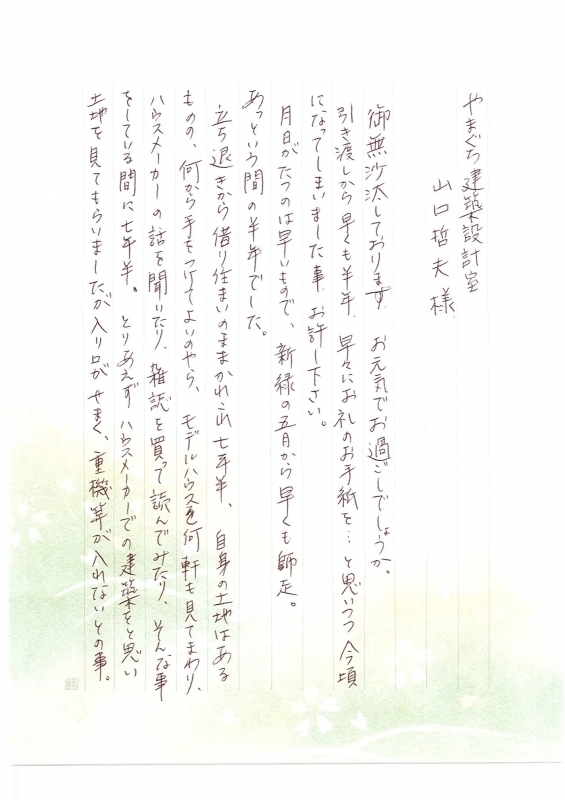 やまぐち建築設計室
山口哲夫様
御無沙汰しております。お元気でお過ごしでしょうか。
引き渡しから早くも半年、早々にお礼のお手紙を…と思いつつ今頃
になってしまいました事、お許し下さい。
月日がたつのは早いもので、新緑の五月から早くも師走。
あっという間の半年でした。
立ち退きから借り住まいのままかれこれ七年半、自身の土地はある
ものの、何から手をつけてよいのやら、モデルハウスを何軒も見てまわり、
ハウスメーカーの話を聞いたり、雑誌を買って読んでみたり、そんな事
をしている間に七年半。とりあえずハウスメーカーでの建築をと思い
土地を見てもらいましたが入り口がせまく、重機等が入れないとの事。